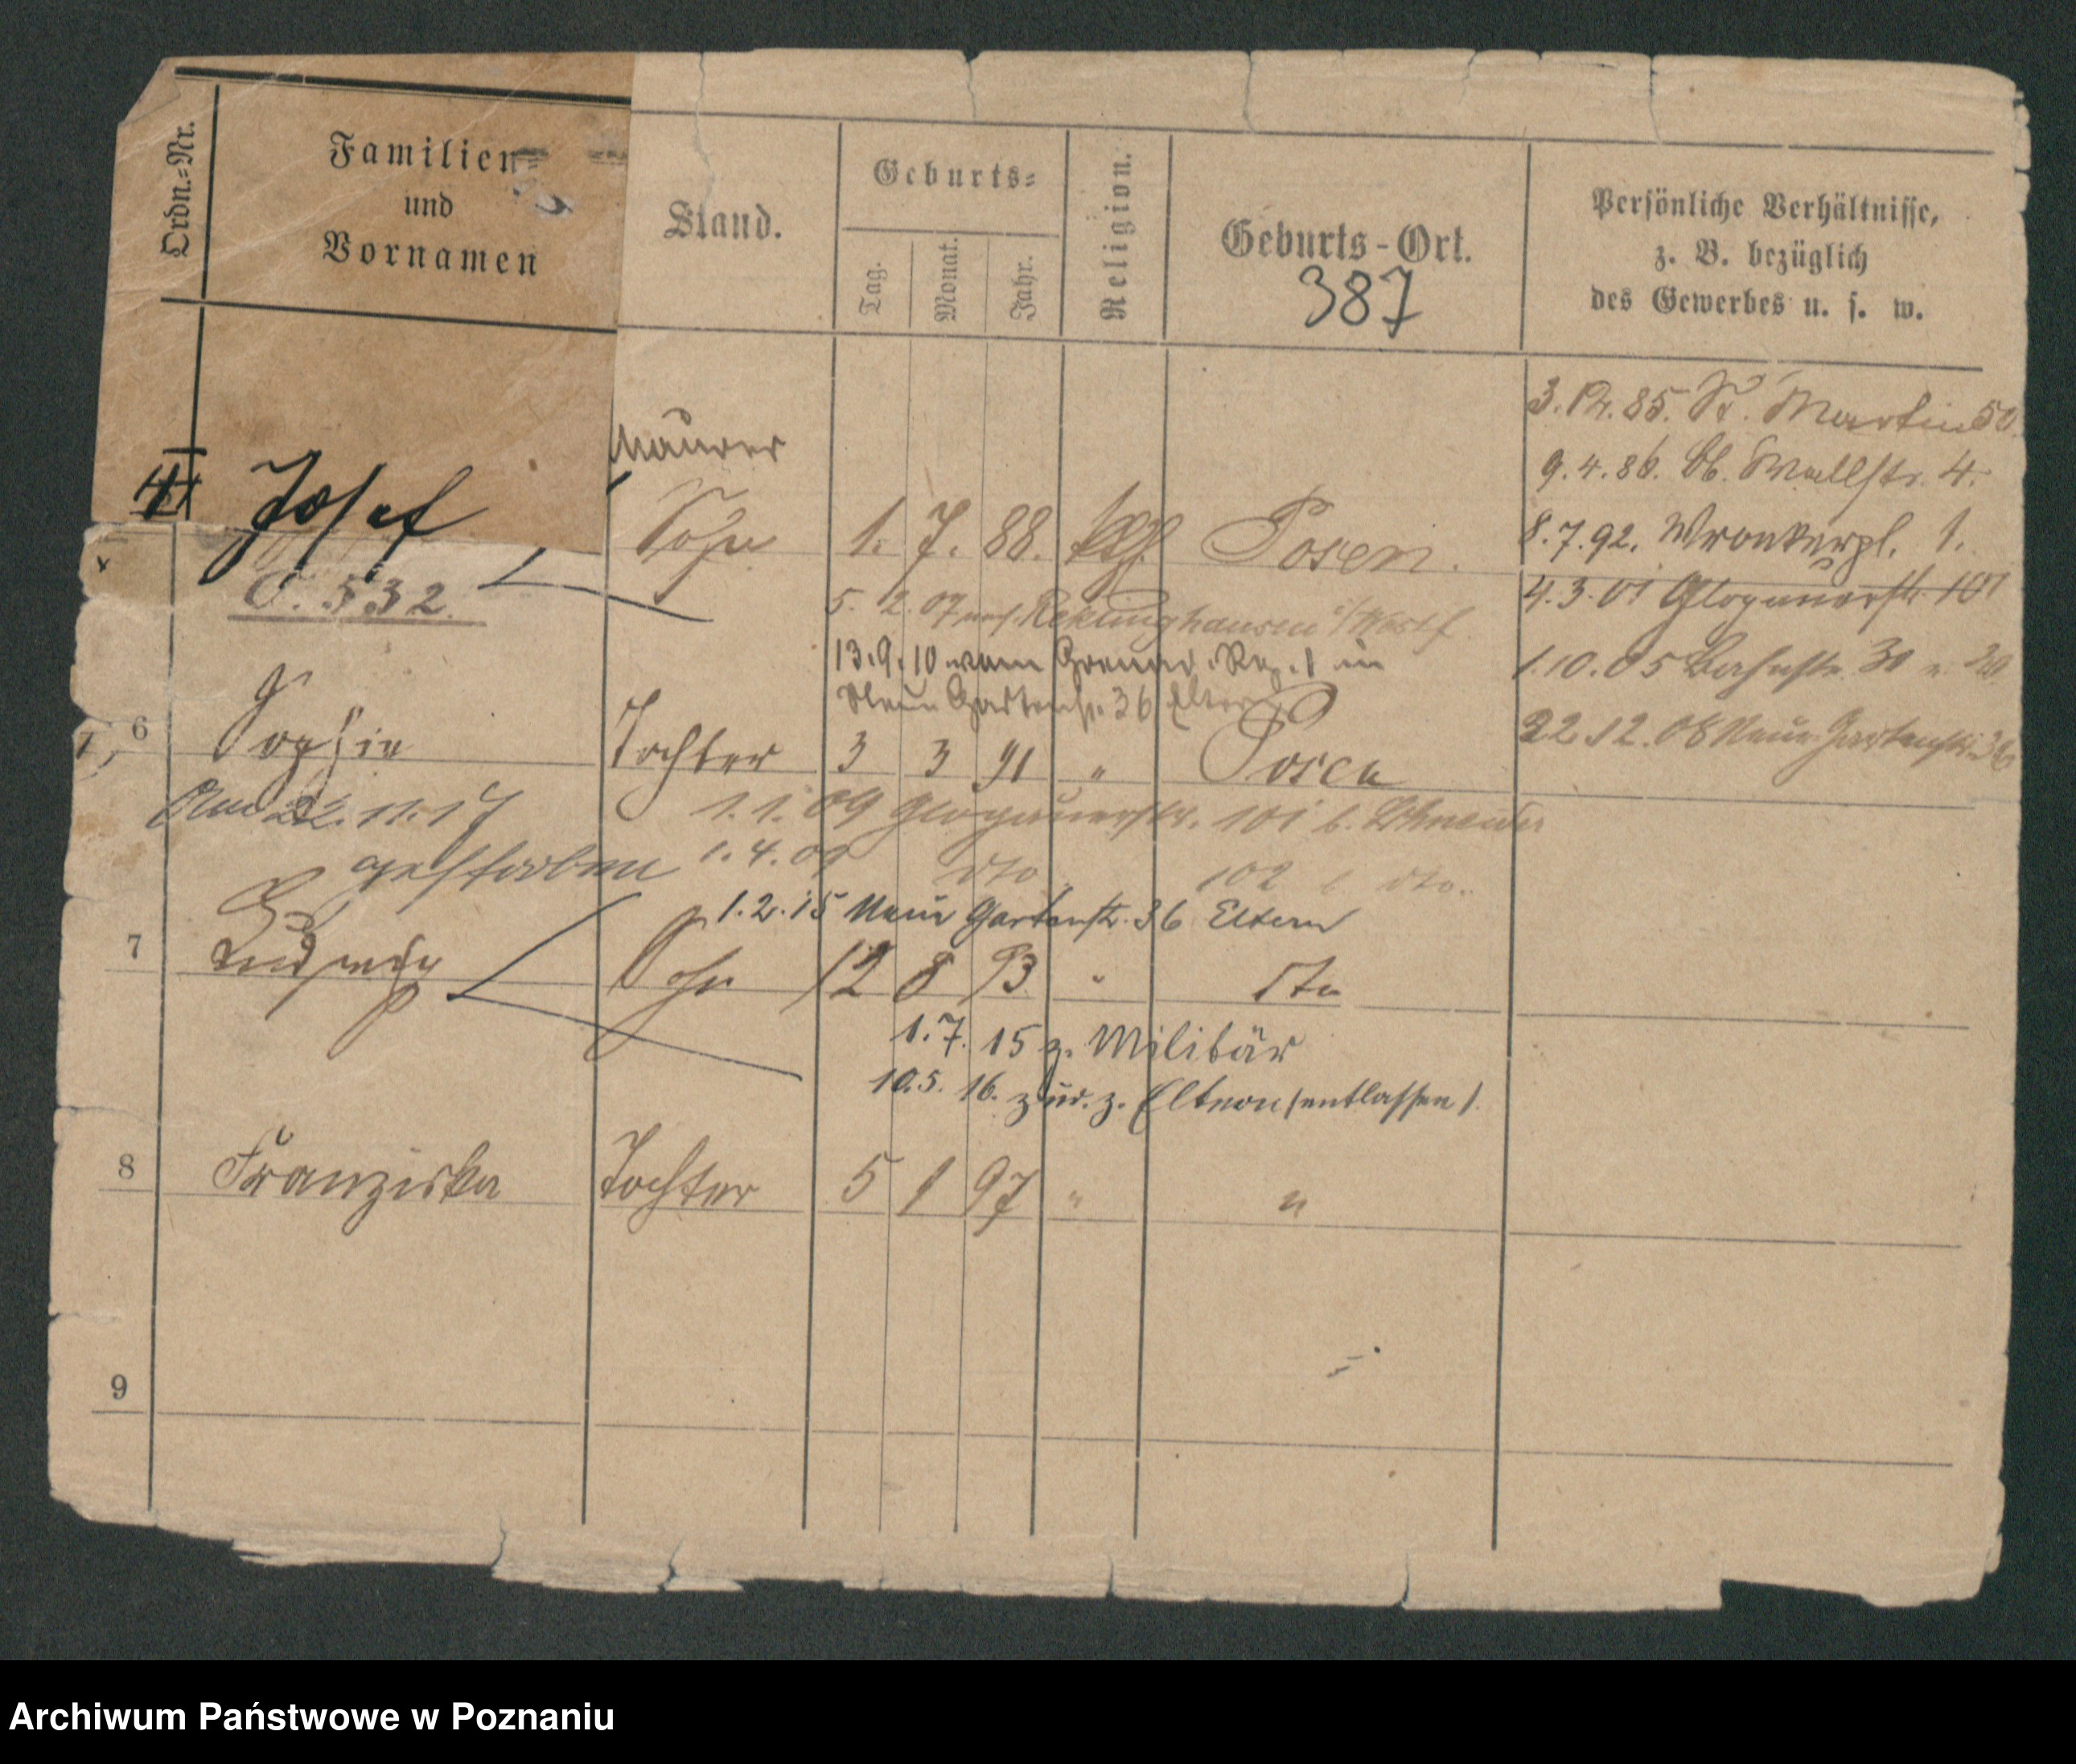 Ordn.=Nr.
Familien=
und
Vornamen
Stand.
Geburts=
Tag.
Monat.
Jahr.
Religion.
Geburts-Ort.
387
Persönliche Verhältnisse,
z. B. bezüglich
des Gewerbes u. s. w.
3. 12. 85. St. Martin 50.
Maurer
9. 4. 86. Wallstr. 4.
Josef Sohn 1. 7. 88. kth Posen.
8. 7. 92. Wronkerpl. 1.
O. 532.
4. 3. 01 Glogauerstr 101
5. 2. 07 Reklinghausen i/Westf
13. 9. 10 vom Grenad. Reg. 1 in
1. 10. 05 Bahnstr. 30
Neue Gartenstr. 36 Eltern
22. 12. 08 Neue Gartenstr. 36
6 Sophie Tochter 3 3 91 " Posen
Am 22. 11. 17
1. 1. 09 Glogauerstr. 101 b. Schneider
gestorben
1. 4. 09 dto 102 b. dto.
1. 2. 15 Neue Gartenstr. 36 Eltern
7 Ludwig Sohn 12 8 93 " dto
1. 7. 15 z. Militär
10. 5. 16. zur. z. Eltern (entlassen).
8 Franziska Tochter 5 1 97 " "
9
Archiwum Państwowe w Poznaniu